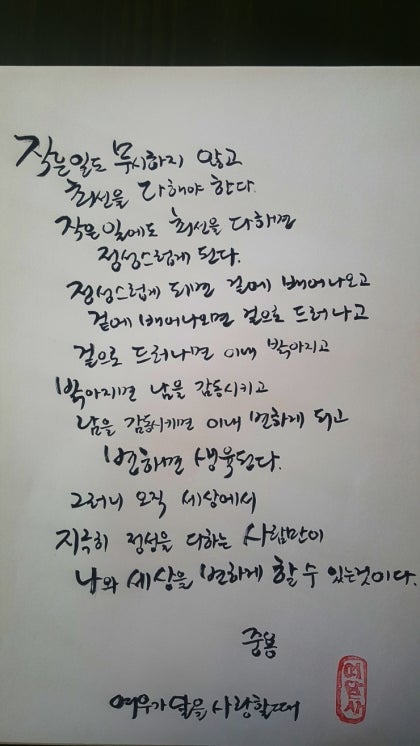 작은일도 무시하지 않고
최선을 다해야 한다.
작은일에도 최선을 다하면
정성스럽게 된다.
정성스럽게 되면 겉에 배어나오고
겉에 배어나오면 겉으로 드러나고
겉으로 드러나면 이내 밝아지고
밝아지면 남을 감동시키고
남을 감동시키면 이내 변하게 되고
변하면 생육된다.
그러니 오직 세상에서
지극히 정성을 다하는 사람만이
나와 세상을 변하게 할 수 있는것이다.
중용
여우가 달을 사랑할때
여달사